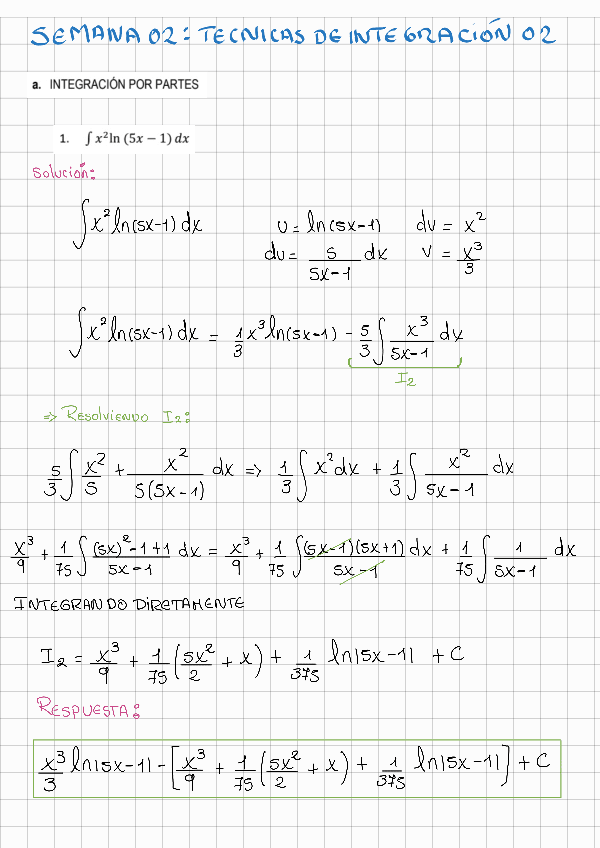 SEMANA 02: TECNICAS DE INTEGRACIÓN 02
a. INTEGRACIÓN POR PARTES
1. ∫ x² ln (5x − 1) dx
Solución:
∫ x² ln(5x-1) dx    u = ln(5x-1)    dv = x²
du = 5/(5x-1) dx    v = x³/3
∫ x² ln(5x-1) dx = 1/3 x³ ln(5x-1) - 5/3 ∫ x³/(5x-1) dx
I₂
⇒ RESOLVIENDO I₂:
5/3 ∫ x²/5 + x²/(5(5x-1)) dx ⇒ 1/3 ∫ x² dx + 1/3 ∫ x²/(5x-1) dx
x³/9 + 1/75 ∫ ((5x)²-1+1)/(5x-1) dx = x³/9 + 1/75 ∫ (5x-1)(5x+1)/(5x-1) dx + 1/75 ∫ 1/(5x-1) dx
INTEGRANDO DIRETAMENTE
I₂ = x³/9 + 1/75 (5x²/2 + x) + 1/375 ln|5x-1| + C
RESPUESTA:
x³/3 ln|5x-1| - [x³/9 + 1/75 (5x²/2 + x) + 1/375 ln|5x-1|] + C